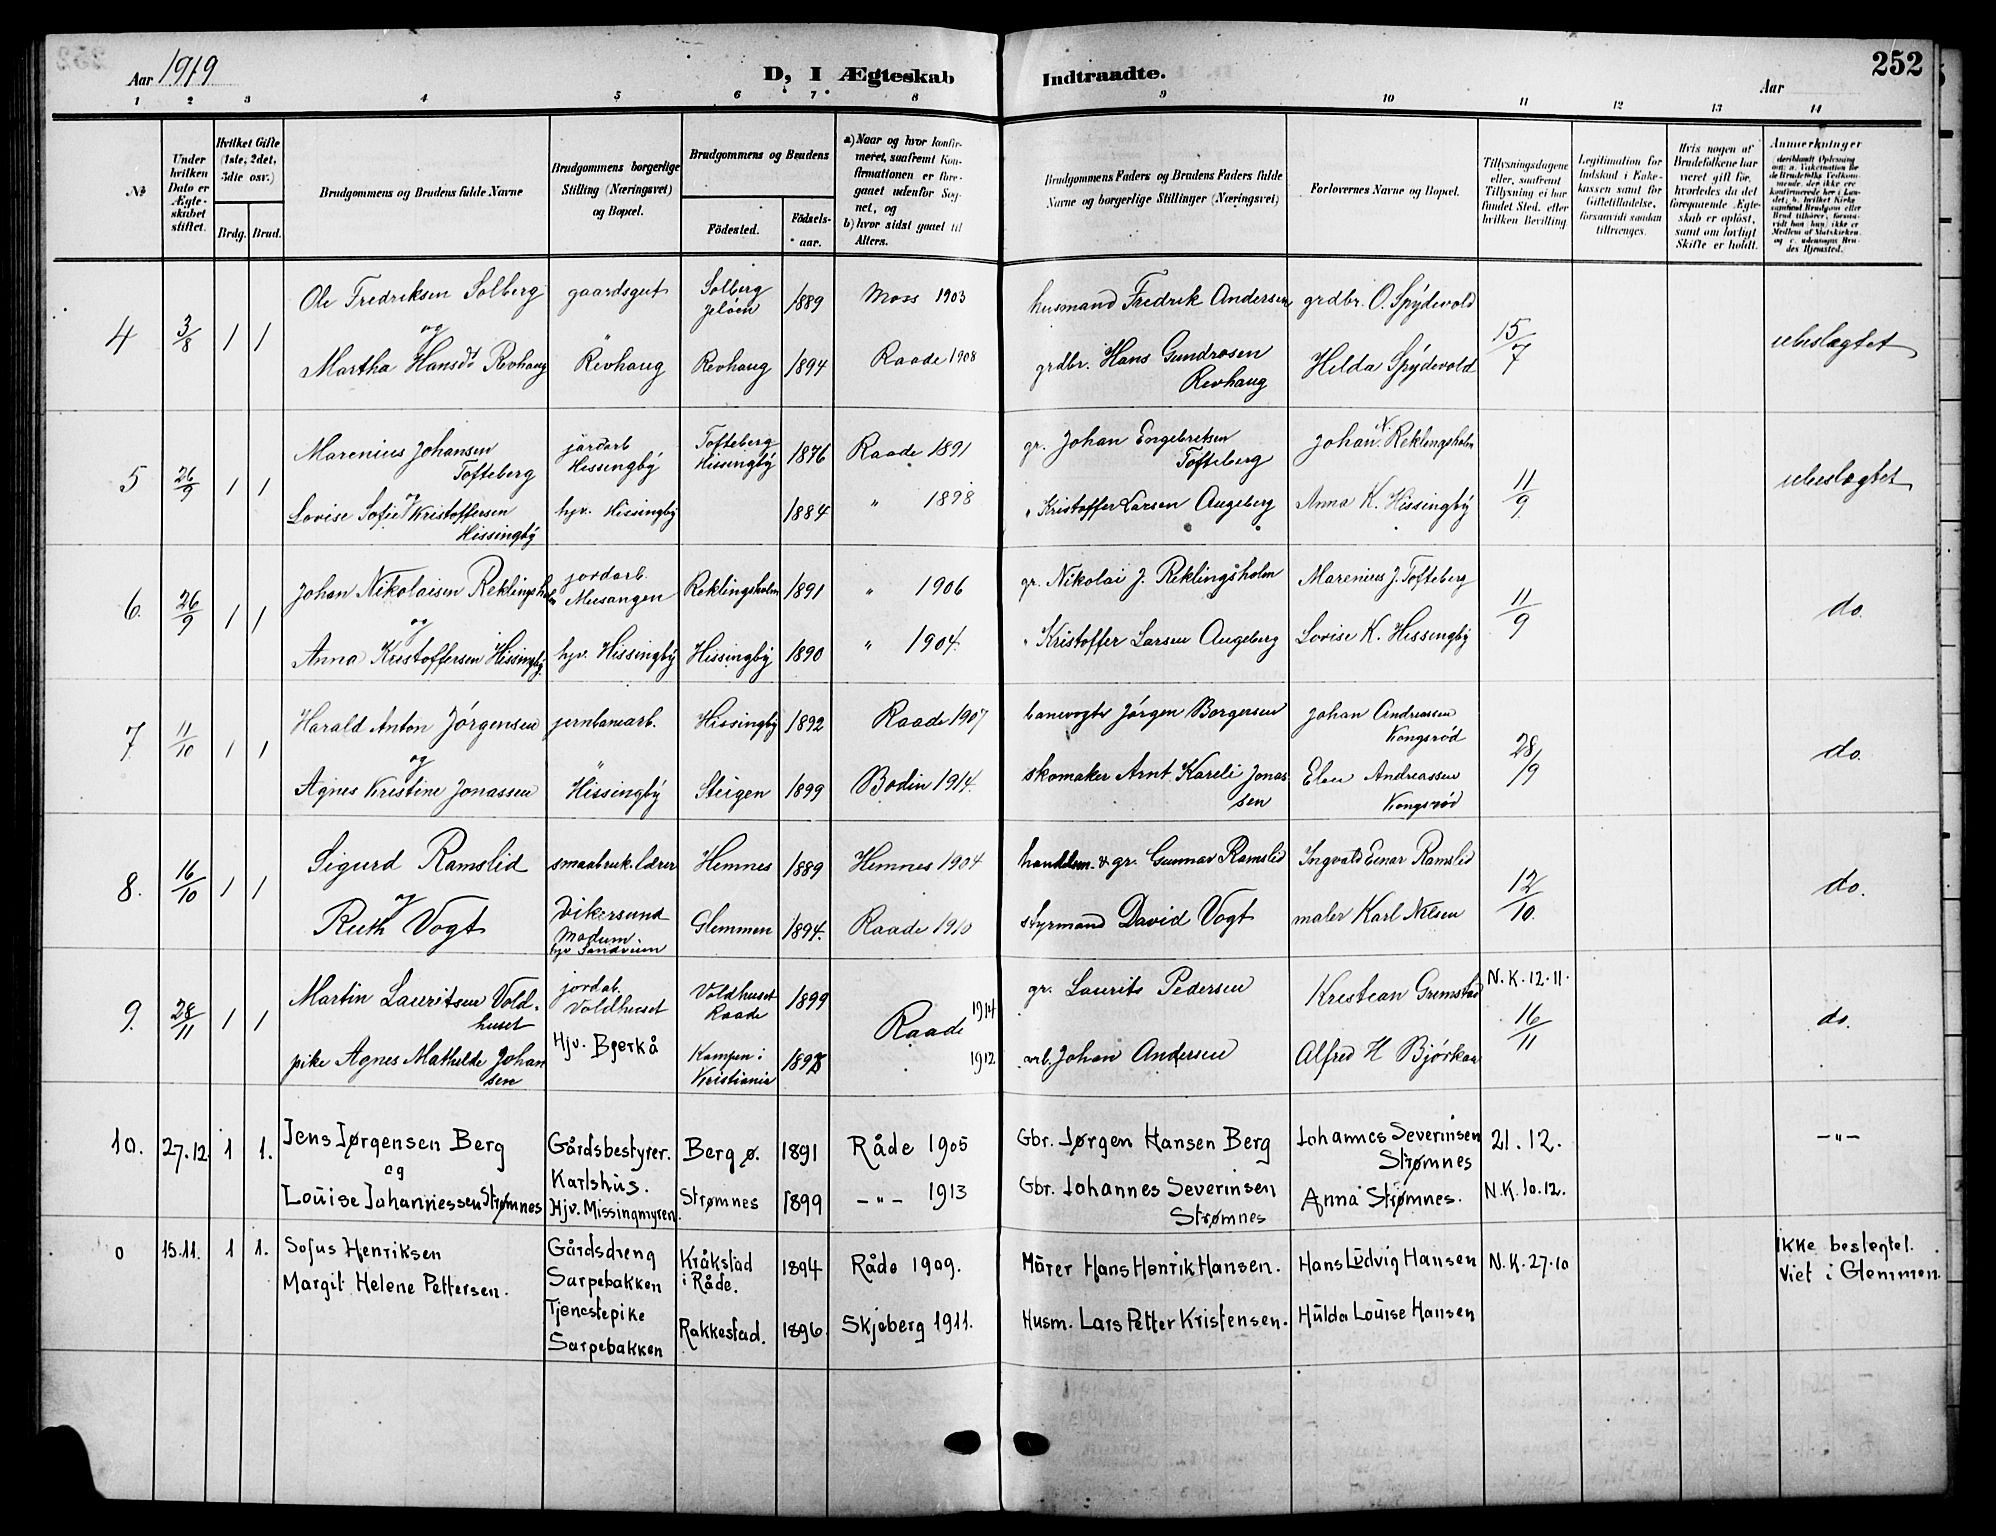 Aar 1919
D, I Ægteskab Indtraadte.
252
Aar
1 2 3 4 5 6 7 8 9 10 11 12 13 14
№
Under hvilken Dato er Ægteskabet stiftet.
Hvilket Gifte (1ste, 2det, 3die osv.)
Brdg. Brud.
Brudgommens og Brudens fulde Navne
Brudgommens borgerlige Stilling (Næringsvei) og Bopæl.
Brudgommens og Brudens
Födested.
Födsels-aar.
a) Naar og hvor konfirmeret, saafremt Konfirmationen er foregaaet udenfor Sognet, og
b) hvor sidst gaaet til Alters.
Brudgommens Faders og Brudens Faders fulde Navne og borgerlige Stillinger (Næringsvei)
Forlovernes Navne og Bopæl.
Tillysningsdagene eller, saafremt Tillysning ei har fundet Sted, efter hvilken Bevilling
Legitimation for Indskud i Enkekassen samt for Giftetilladelse, forsaavidt saadan tiltrænges.
Hvis nogen af Brudefolkene har været gift før, hvorledes da det foregaaende Ægteskab er opløst, samt om lovligt Skifte er holdt.
Anmerkninger
4 3/8 1 1 Ole Fredriksen Solberg gaardsgut Solberg Jeløen 1889 Moss 1903 husmand Fredrik Andersen grdbr. O. Spydevold 15/7 ubeslægtet
og
Martha Hansdt Revhaug Revhaug Revhaug 1894 Raade 1908 grdbr. Hans Gundrosen Revhaug Hilda Spydevold
5 26/9 1 1 Marenius Johansen Tofteberg jordarb Hissingby Tofteberg Hissingby 1876 Raade 1891 gr. Johan Engebretsen Tofteberg Johan N. Reklingsholm 11/9 ubeslægtet
og
Lovise Sofie Kristoffersen Hissingby hjv. Hissingby 1884 " 1898 " Kristoffer Larsen Augeberg Anna K. Hissingby
6. 26/9 1 1 Johan Nikolaisen Reklingsholm jordarb. Musangen Reklingsholm 1891 " 1906 gr. Nikolai J. Reklingsholm Marenius J. Tofteberg 11/9 do.
og
Anna Kristoffersen Hissingby. hjv. Hissingby Hissingby 1890 " 1904. " Kristoffer Larsen Augeberg Lovise K. Hissingby
7. 11/10 1 1 Harald Anton Jørgensen jernbanearb. Hissingby 1892 Raade 1907 banevogter Jørgen Borgersen Johan Andreassen Kongsrød 28/9 do.
og
Agnes Kristine Jonassen Hissingby Steigen 1899 Bodin 1914. skomaker Arnt Kareli Jonassen Elen Andreassen Kongsrød
8. 16/10 1 1 Sigurd Ramslid smaabruk.lærer Hemnes 1889 Hemnes 1904 handelsm. & gr. Gunnar Ramslid Ingvald Einar Ramslid 12/10. do.
og
Ruth Vogt Vikersund Modum hjv Sandveien Glemmen 1894. Raade 1910 styrmand David Vogt maler Karl Nilsen
9. 28/11 1 1 Martin Lauritsen Voldhuset jordab. Voldhuset Voldhuset Raade 1899 Raade 1914 gr. Laurits Pedersen Kristian Grimstad N.K. 12.11. 16/11 do.
pike Agnes Mathilde Johansen Hjv. Bjerkå Kampen i Kristiania 1898 1912 arb. Johan Andersen Alfred H Bjørkaa
10. 27.12 1 1. Jens Jørgensen Berg Gårdsbestyrer. Karlshus. Berg ø. 1891 Råde 1905 Gbr. Jørgen Hansen Berg Johannes Severinsen Strømnes 21.12. —"—
og
Louise Johannessen Strømnes Hjv. Missingmyren. Strømnes 1899 —"— 1913 Gbr. Johannes Severinsen Strømnes Anna Strømnes. N.K. 10.12.
0 15.11. 1 1. Sofus Henriksen Gårdsdreng Sarpebakken Kråkstad i Råde. 1894 Råde 1909. Mürer Hans Henrik Hansen. Hans Ludvig Hansen N.K. 27.10 Ikke beslegtet. Viet i Glemmen.
Margit Helene Pettersen. Tjenestepike Sarpebakken Rakkestad. 1896. Skjeberg 1911. Husm. Lars Petter Kristensen. Hulda Louise Hansen